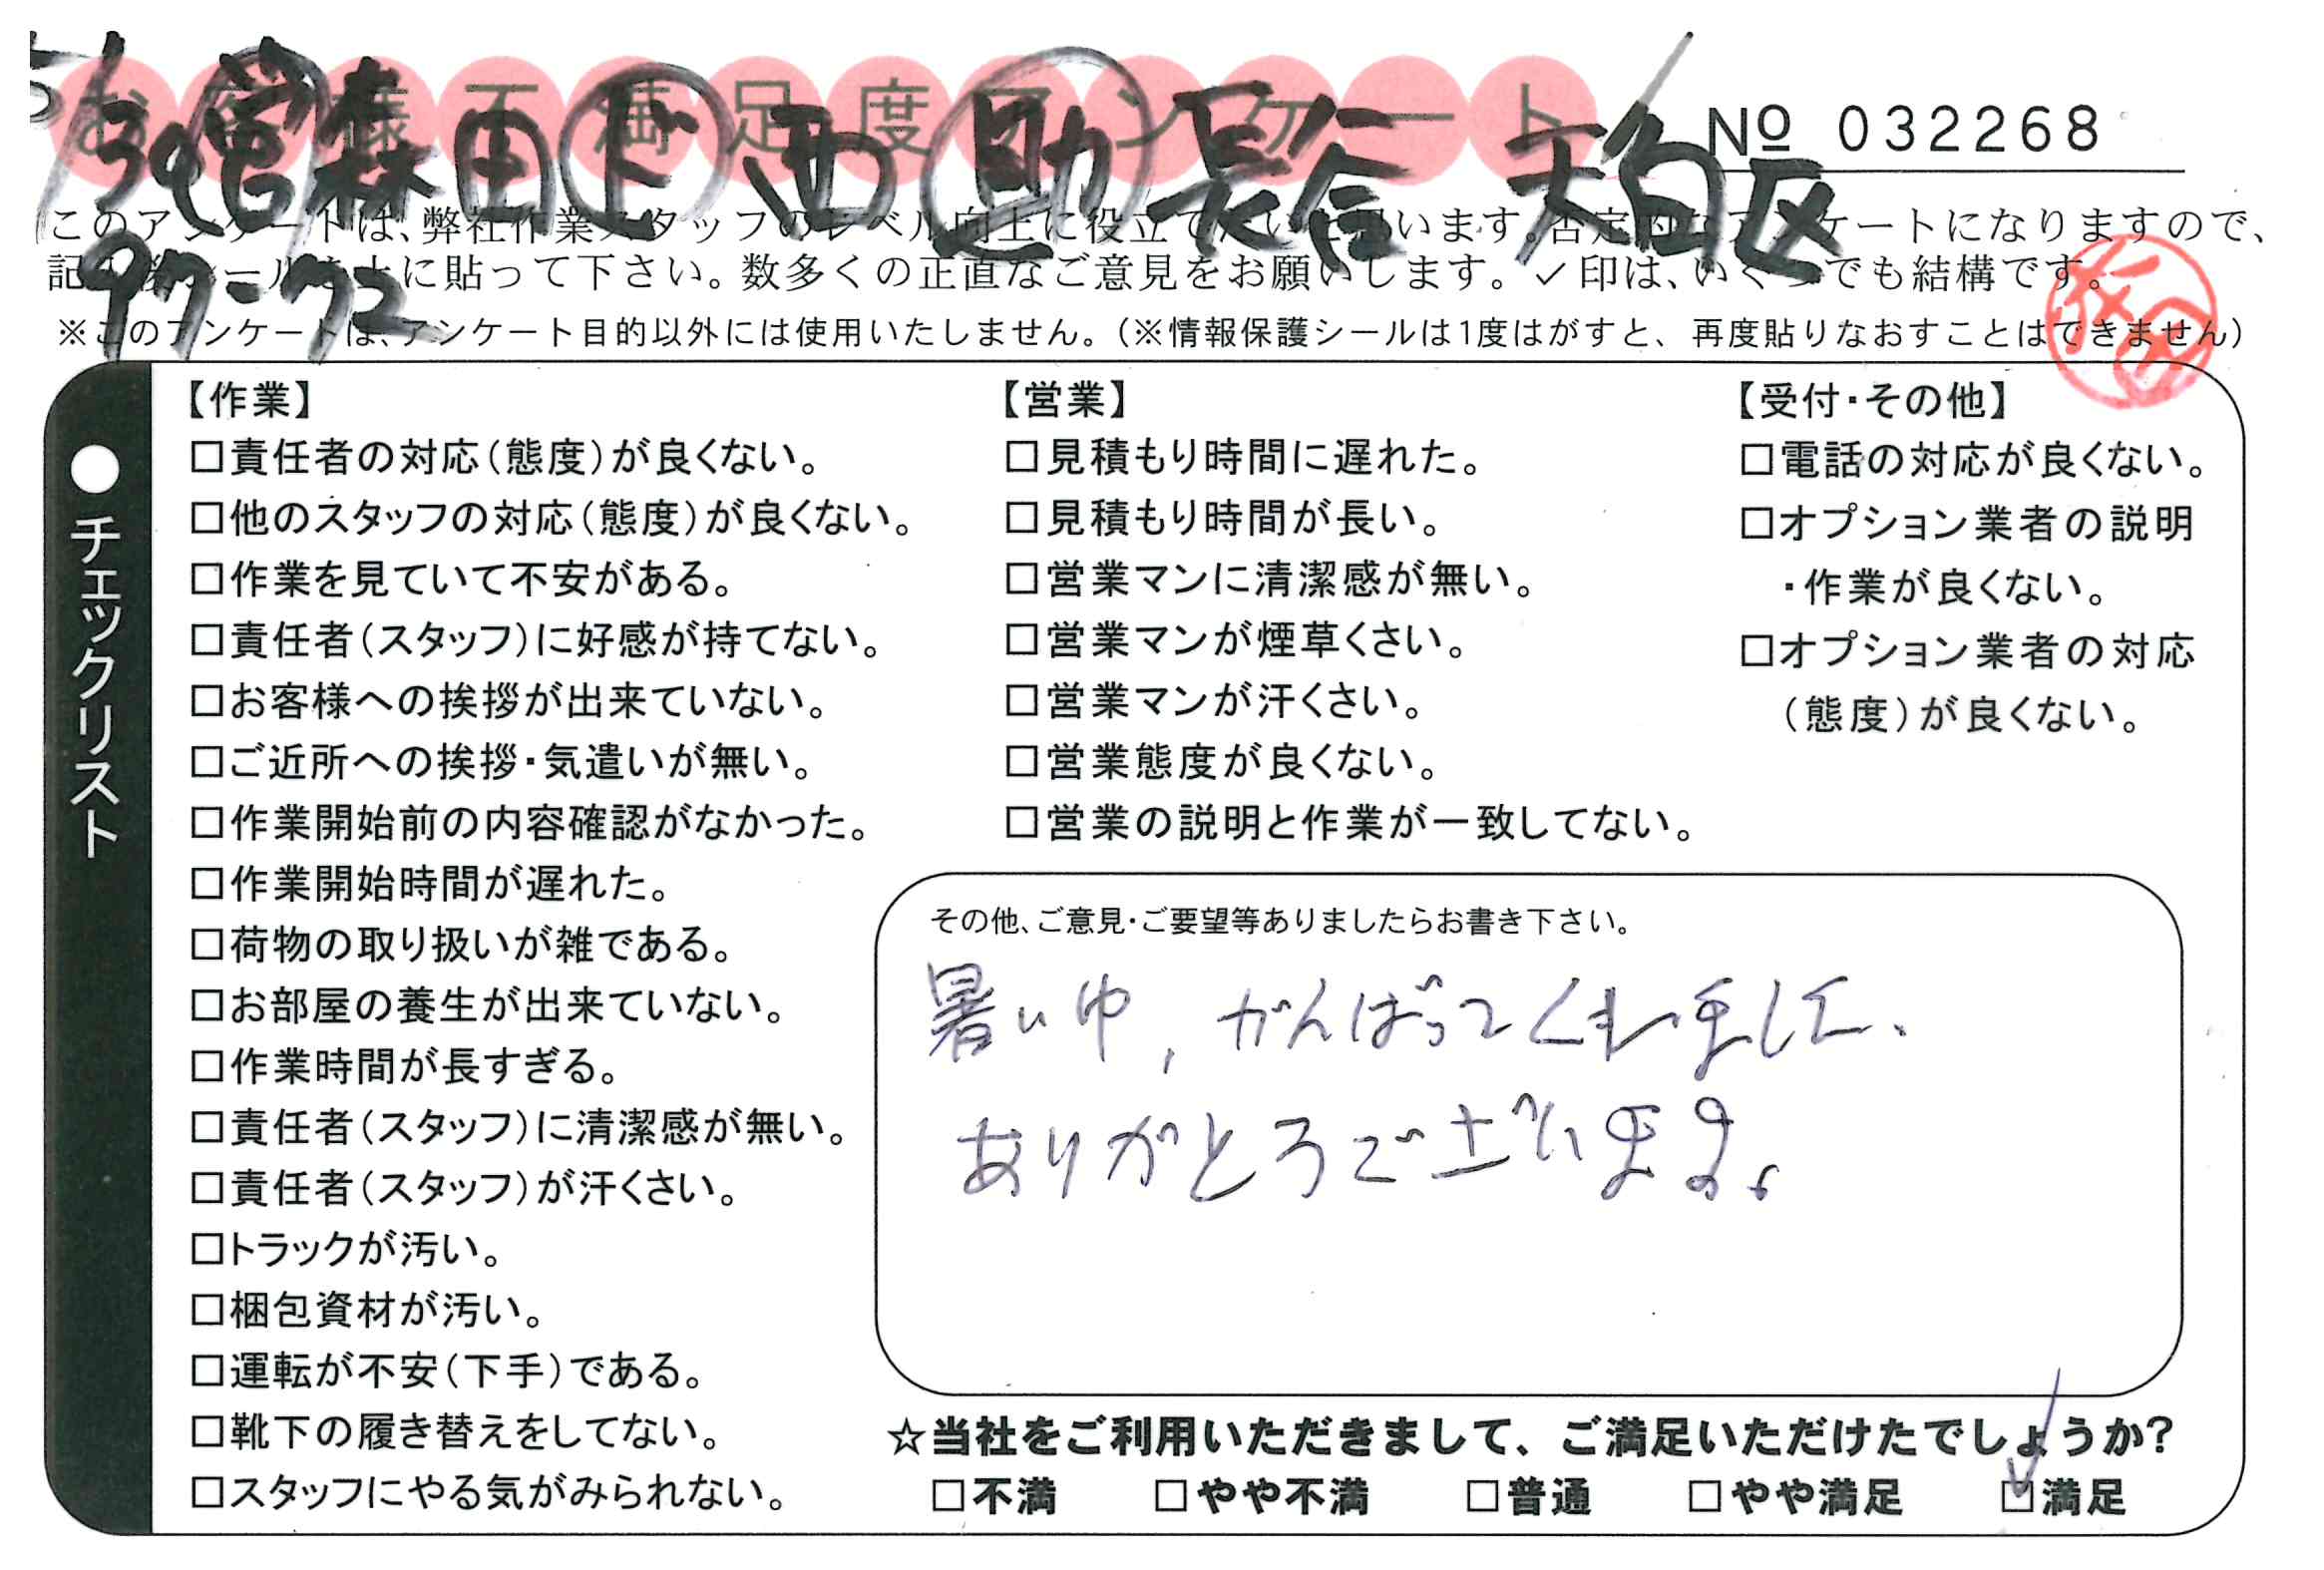 お客様不満足度アンケート
№ 032268
5/30 営 森田 ド 西 助 長谷 天白区
97-72
このアンケートは、弊社作業スタッフのレベル向上に役立てたいと思います。否定的なアンケートになりますので、
記入後シールを上に貼って下さい。数多くの正直なご意見をお願いします。✓印は、いくつでも結構です。
※このアンケートは、アンケート目的以外には使用いたしません。(※情報保護シールは1度はがすと、再度貼りなおすことはできません)
●チェックリスト
【作業】
□責任者の対応(態度)が良くない。
□他のスタッフの対応(態度)が良くない。
□作業を見ていて不安がある。
□責任者(スタッフ)に好感が持てない。
□お客様への挨拶が出来ていない。
□ご近所への挨拶・気遣いが無い。
□作業開始前の内容確認がなかった。
□作業開始時間が遅れた。
□荷物の取り扱いが雑である。
□お部屋の養生が出来ていない。
□作業時間が長すぎる。
□責任者(スタッフ)に清潔感が無い。
□責任者(スタッフ)が汗くさい。
□トラックが汚い。
□梱包資材が汚い。
□運転が不安(下手)である。
□靴下の履き替えをしてない。
□スタッフにやる気がみられない。
【営業】
□見積もり時間に遅れた。
□見積もり時間が長い。
□営業マンに清潔感が無い。
□営業マンが煙草くさい。
□営業マンが汗くさい。
□営業態度が良くない。
□営業の説明と作業が一致してない。
【受付・その他】
□電話の対応が良くない。
□オプション業者の説明
・作業が良くない。
□オプション業者の対応
(態度)が良くない。
その他、ご意見・ご要望等ありましたらお書き下さい。
暑い中, がんばってくれました、
ありがとうございます。
☆当社をご利用いただきまして、ご満足いただけたでしょうか?
□不満 □やや不満 □普通 □やや満足 ☑満足